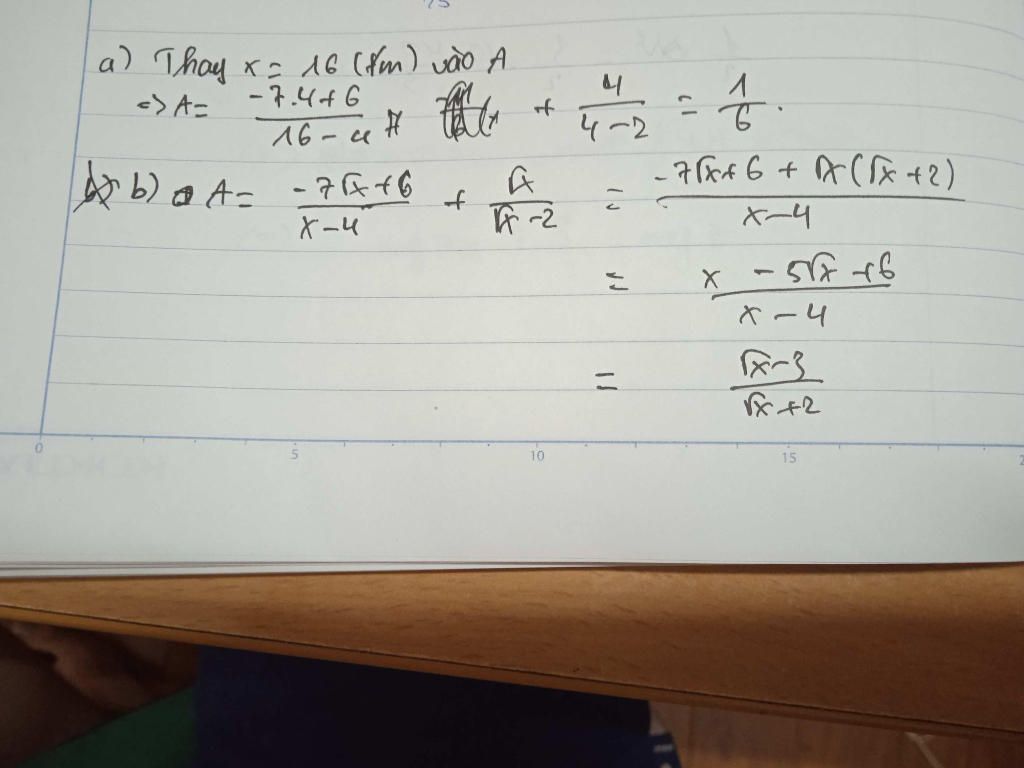 a) Thay x = 16 (tm) vào A
=> A = \frac{-7.4+6}{16-4} + \frac{4}{4-2} = \frac{1}{6}.
b) A = \frac{-7\sqrt{x}+6}{x-4} + \frac{\sqrt{x}}{\sqrt{x}-2} = \frac{-7\sqrt{x}+6+\sqrt{x}(\sqrt{x}+2)}{x-4}
= \frac{x-5\sqrt{x}+6}{x-4}
= \frac{\sqrt{x}-3}{\sqrt{x}+2}
0 5 10 15